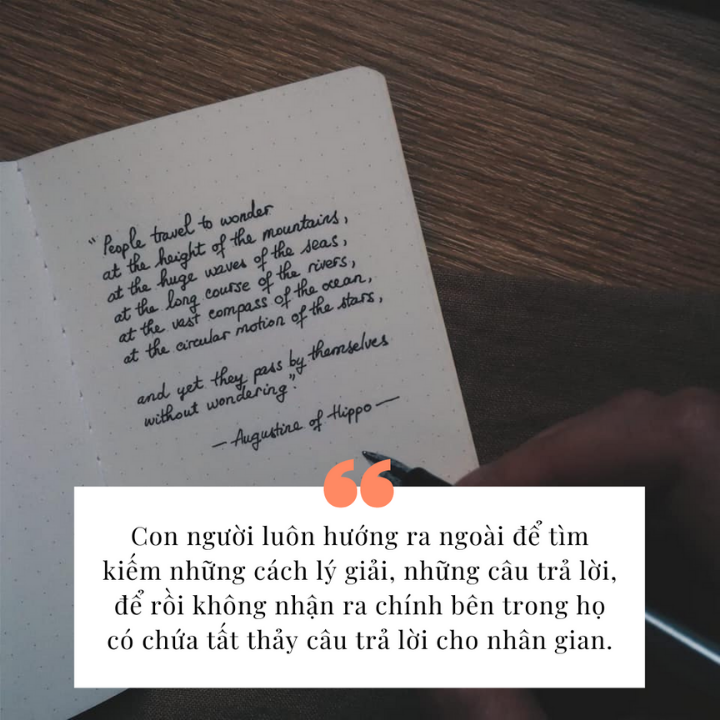 "People travel to wonder
at the height of the mountains,
at the huge waves of the seas,
at the long course of the rivers,
at the vast compass of the ocean,
at the circular motion of the stars,
and yet they pass by themselves
without wondering"
— Augustine of Hippo —
“
Con người luôn hướng ra ngoài để tìm
kiếm những cách lý giải, những câu trả lời,
để rồi không nhận ra chính bên trong họ
có chứa tất thảy câu trả lời cho nhân gian.